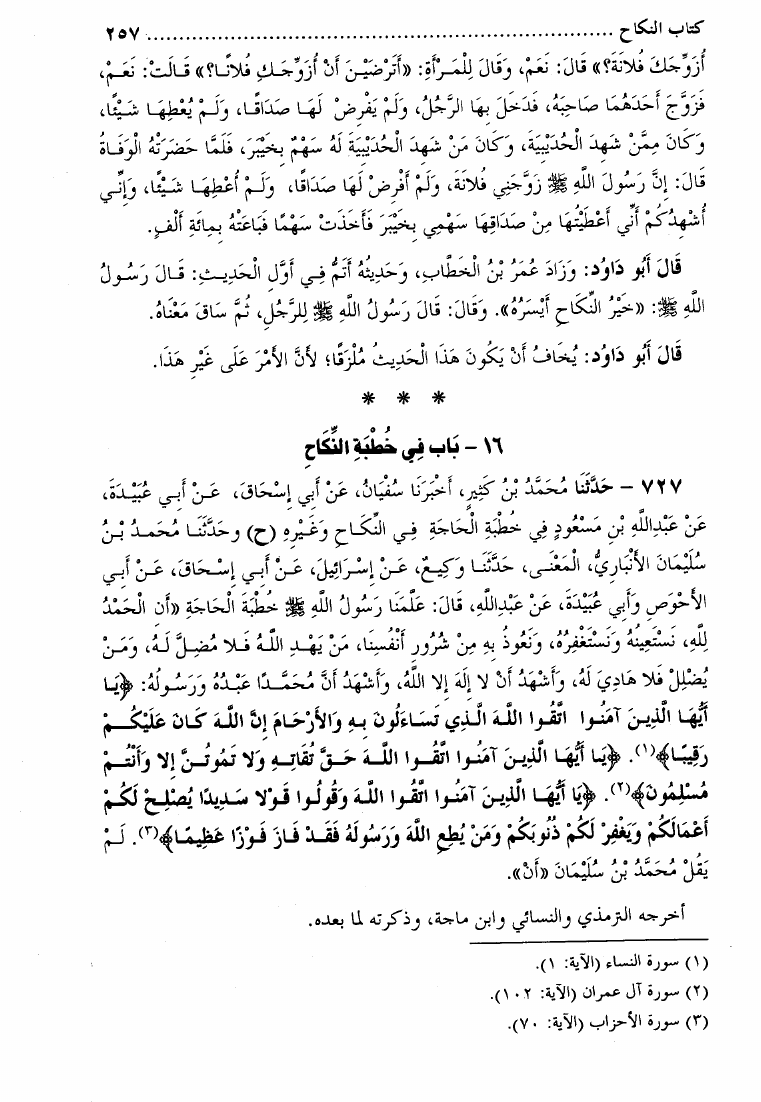 كتاب النكاح ........................................................................ ٢٥٧
أُزَوِّجَكَ فُلَانَةَ؟» قَالَ: نَعَمْ، وَقَالَ لِلْمَرْأَةِ: «أَتَرْضَيْنَ أَنْ أُزَوِّجَكِ فُلَانًا؟» قَالَتْ: نَعَمْ،
فَزَوَّجَ أَحَدَهُمَا صَاحِبَهُ، فَدَخَلَ بِهَا الرَّجُلُ، وَلَمْ يَفْرِضْ لَهَا صَدَاقًا، وَلَمْ يُعْطِهَا شَيْئًا،
وَكَانَ مِمَّنْ شَهِدَ الْحُدَيْبِيَةَ، وَكَانَ مَنْ شَهِدَ الْحُدَيْبِيَةَ لَهُ سَهْمٌ بِخَيْبَرَ، فَلَمَّا حَضَرَتْهُ الْوَفَاةُ
قَالَ: إِنَّ رَسُولَ اللَّهِ ﷺ زَوَّجَنِي فُلَانَةَ، وَلَمْ أَفْرِضْ لَهَا صَدَاقًا، وَلَمْ أُعْطِهَا شَيْئًا، وَإِنِّي
أُشْهِدُكُمْ أَنِّي أَعْطَيْتُهَا مِنْ صَدَاقِهَا سَهْمِي بِخَيْبَرَ فَأَخَذَتْ سَهْمًا فَبَاعَتْهُ بِمِائَةِ أَلْفٍ.
قَالَ أَبُو دَاوُد: وَزَادَ عُمَرُ بْنُ الْخَطَّابِ، وَحَدِيثُهُ أَتَمُّ فِي أَوَّلِ الْحَدِيثِ: قَالَ رَسُولُ
اللَّهِ ﷺ: «خَيْرُ النِّكَاحِ أَيْسَرُهُ». وَقَالَ: قَالَ رَسُولُ اللَّهِ ﷺ لِلرَّجُلِ، ثُمَّ سَاقَ مَعْنَاهُ.
قَالَ أَبُو دَاوُد: يُخَافُ أَنْ يَكُونَ هَذَا الْحَدِيثُ مُلْزَقًا؛ لأَنَّ الأَمْرَ عَلَى غَيْرِ هَذَا.
* * *
١٦ - بَاب فِي خُطْبَةِ النِّكَاحِ
٧٢٧ - حَدَّثَنَا مُحَمَّدُ بْنُ كَثِيرٍ، أَخْبَرَنَا سُفْيَانُ، عَنْ أَبِي إِسْحَاقَ، عَنْ أَبِي عُبَيْدَةَ،
عَنْ عَبْدِاللَّهِ بْنِ مَسْعُودٍ فِي خُطْبَةِ الْحَاجَةِ فِي النِّكَاحِ وَغَيْرِهِ (ح) وحَدَّثَنَا مُحَمدُ بْنُ
سُلَيْمَانَ الأَنْبَارِيُّ، الْمَعْنَى، حَدَّثَنَا وَكِيعٌ، عَنْ إِسْرَائِيلَ، عَنْ أَبِي إِسْحَاقَ، عَنْ أَبِي
الأَحْوَصِ وَأَبِي عُبَيْدَةَ، عَنْ عَبْدِاللَّهِ، قَالَ: عَلَّمَنَا رَسُولُ اللَّهِ ﷺ خُطْبَةَ الْحَاجَةِ «أَنِ الْحَمْدُ
لِلَّهِ، نَسْتَعِينُهُ وَنَسْتَغْفِرُهُ، وَنَعُوذُ بِهِ مِنْ شُرُورِ أَنْفُسِنَا، مَنْ يَهْدِ اللَّهُ فَلا مُضِلَّ لَهُ، وَمَنْ
يُضْلِلْ فَلا هَادِيَ لَهُ، وَأَشْهَدُ أَنْ لا إِلَهَ إِلا اللَّهُ، وَأَشْهَدُ أَنَّ مُحَمَّدًا عَبْدُهُ وَرَسُولُهُ: ﴿يَا
أَيُّهَا الَّذِينَ آمَنُوا اتَّقُوا اللَّهَ الَّذِي تَسَاءَلُونَ بِهِ وَالأَرْحَامَ إِنَّ اللَّهَ كَانَ عَلَيْكُمْ
رَقِيبًا﴾(١). ﴿يَا أَيُّهَا الَّذِينَ آمَنُوا اتَّقُوا اللَّهَ حَقَّ تُقَاتِهِ وَلا تَمُوتُنَّ إِلا وَأَنْتُمْ
مُسْلِمُونَ﴾(٢). ﴿يَا أَيُّهَا الَّذِينَ آمَنُوا اتَّقُوا اللَّهَ وَقُولُوا قَوْلا سَدِيدًا يُصْلِحْ لَكُمْ
أَعْمَالَكُمْ وَيَغْفِرْ لَكُمْ ذُنُوبَكُمْ وَمَنْ يُطِعِ اللَّهَ وَرَسُولَهُ فَقَدْ فَازَ فَوْزًا عَظِيمًا﴾(٣). لَمْ
يَقُلْ مُحَمَّدُ بْنُ سُلَيْمَانَ «أَنْ».
أخرجه الترمذي والنسائي وابن ماجة، وذكرته لما بعده.
(١) سورة النساء (الآية: ١).
(٢) سورة آل عمران (الآية: ١٠٢).
(٣) سورة الأحزاب (الآية: ٧٠).